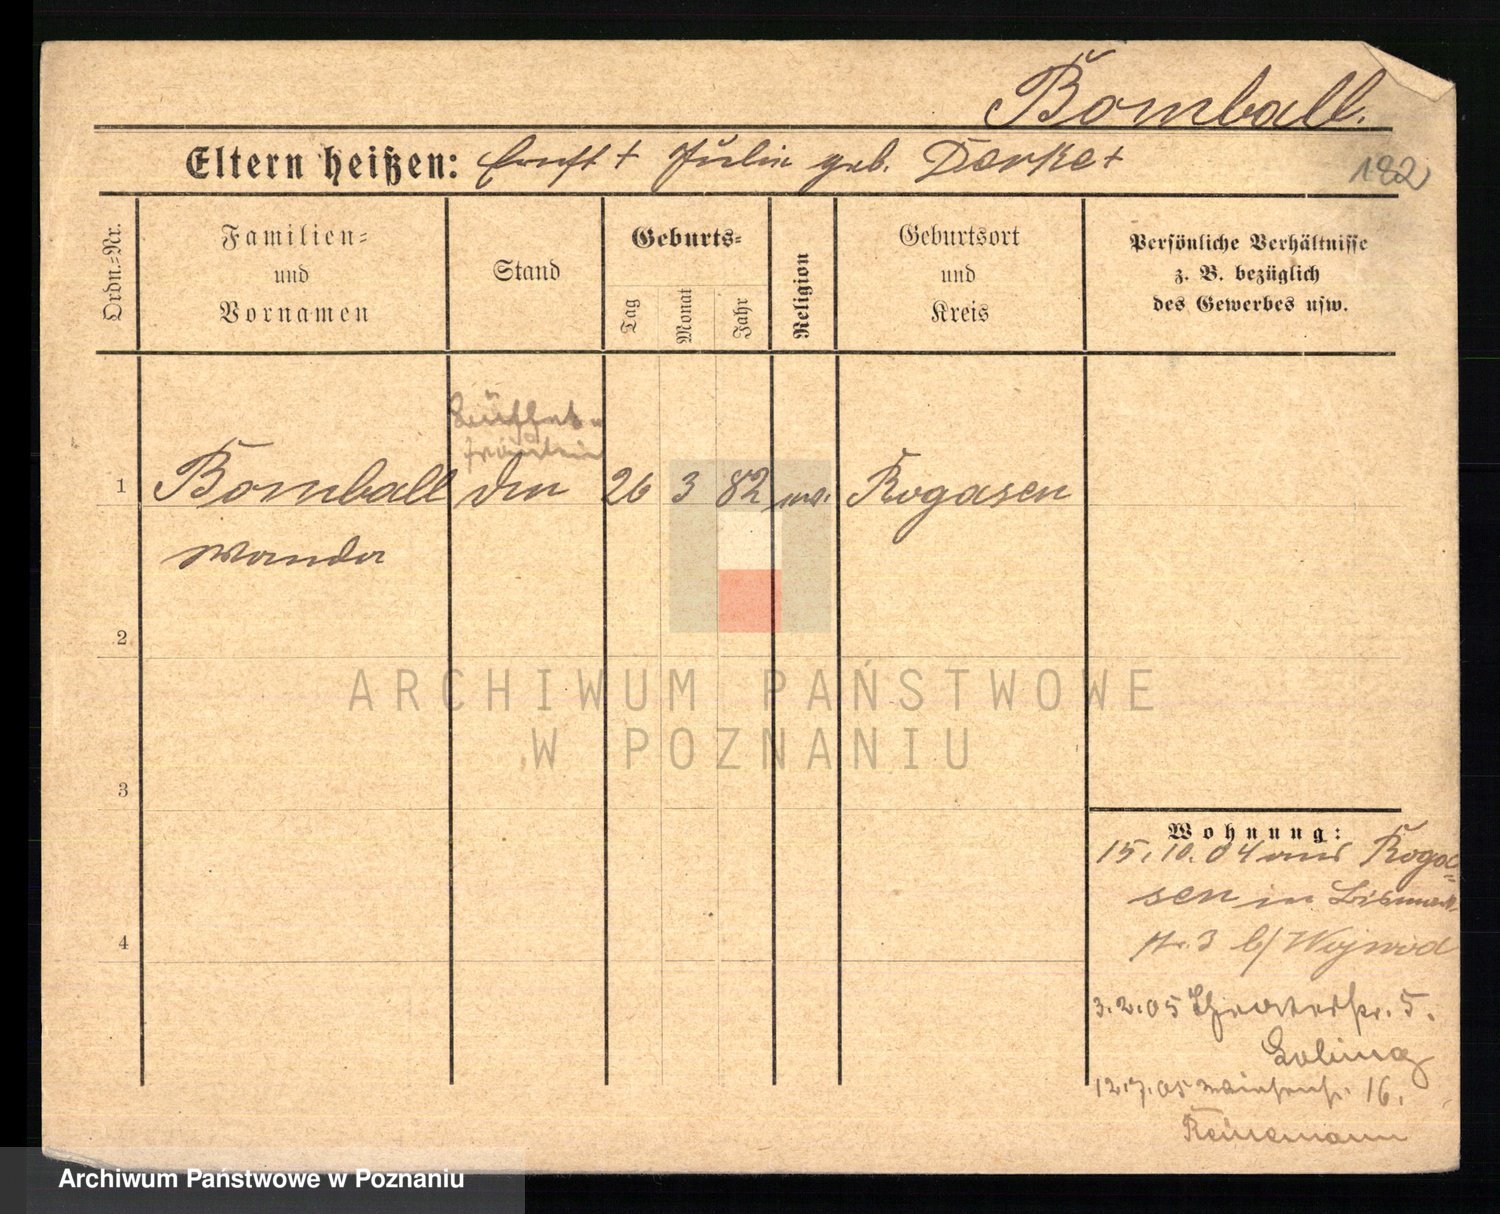 Bomball.
Eltern heißen: Ernst + Julie geb. Derke +
182
Ordn.=Nr.
Familien=
und
Vornamen
Stand
Geburts=
Tag
Monat
Jahr
Religion
Geburtsort
und
Kreis
Persönliche Verhältnisse
z. B. bezüglich
des Gewerbes usw.
Büffet
fräulein
1 Bomball 26 3 82 Rogasen
Wanda
2
3
4
Wohnung:
15.10.04 aus Rogas=
sen in Bismarck
str. 3 b/ Wojwod
3.2.05 Theaterstr. 5.
12.7.05 16.
Reinemann
ARCHIWUM PAŃSTWOWE
W POZNANIU
Archiwum Państwowe w Poznaniu